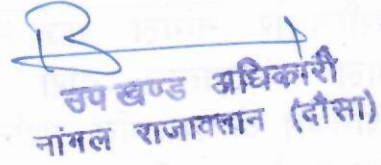 उप खण्ड अधिकारी
नांगल राजावतान (दौसा)